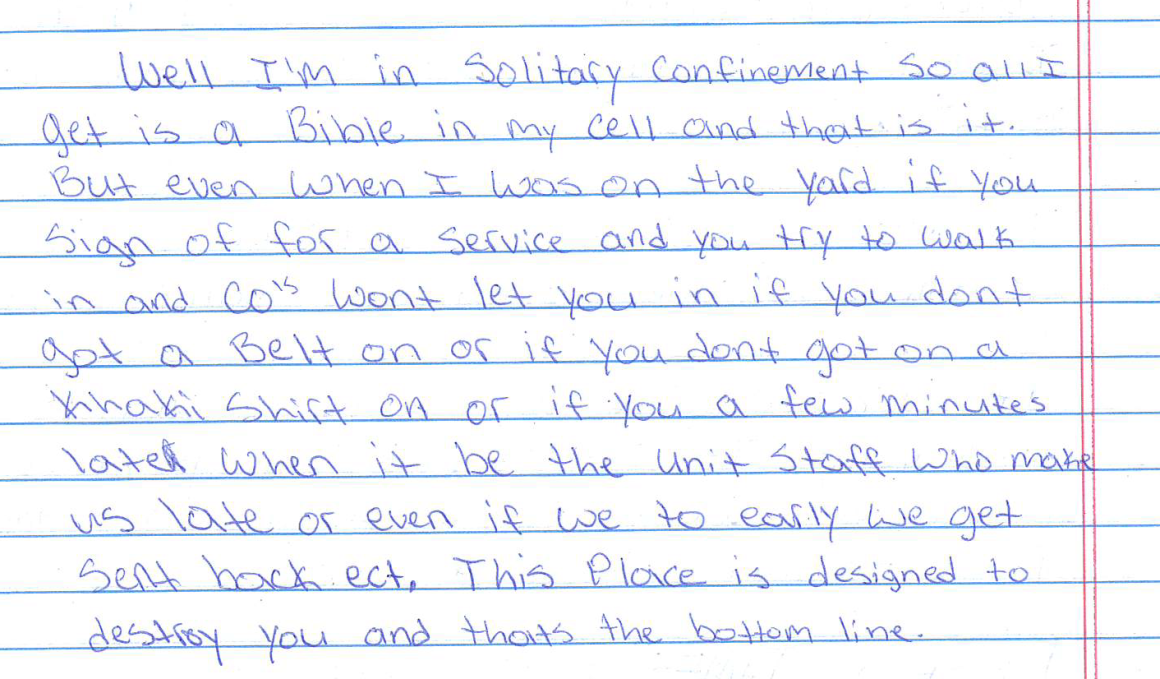 Well I'm in Solitary Confinement So all I
get is a Bible in my Cell and that is it.
But even when I was on the yard if you
Sign of for a Service and you try to walk
in and CO's wont let you in if you dont
got a Belt on or if you dont got on a
Khaki Shirt on or if you a few minutes
later when it be the unit Staff who make
us late or even if we to early we get
Sent back ect, This Place is designed to
destroy you and thats the bottom line.